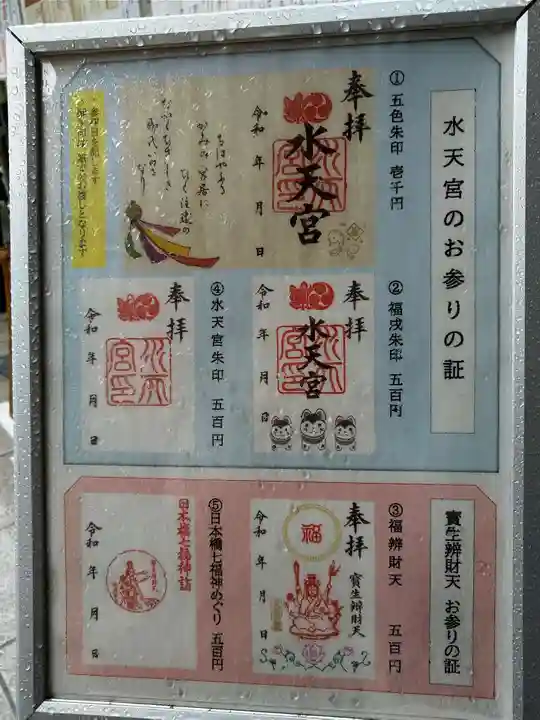 水天宮のお参りの証
①五色朱印 壱千円
奉拝
水天宮
令和 年 月 日
②福戌朱印 五百円
奉拝
水天宮
令和 年 月 日
④水天宮朱印 五百円
奉拝
令和 年 月 日
寳生辨財天 お参りの証
③福辨財天 五百円
奉拝
福
寳生辨財天
令和 年 月 日
⑤日本橋七福神めぐり 五百円
日本橋七福神詣
令和 年 月 日